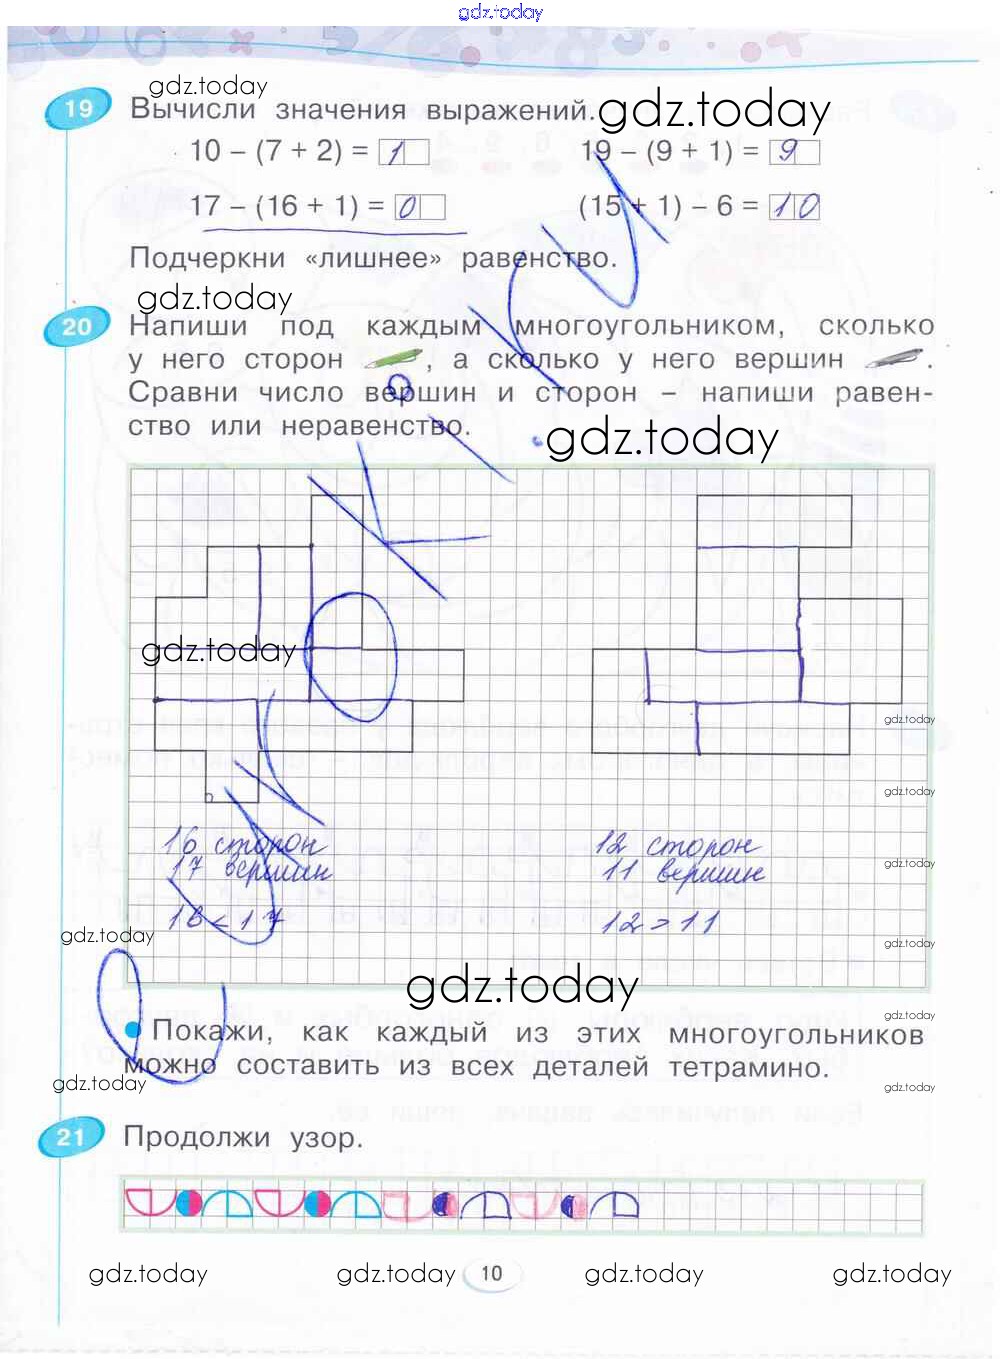 gdz.today
gdz.today
19 Вычисли значения выражений. gdz.today
10 – (7 + 2) = 1 19 – (9 + 1) = 9
17 – (16 + 1) = 0 (15 + 1) – 6 = 10
Подчеркни «лишнее» равенство.
gdz.today
20 Напиши под каждым многоугольником, сколько
у него сторон , а сколько у него вершин .
Сравни число вершин и сторон – напиши равен-
ство или неравенство.
gdz.today
gdz.today
gdz.today
gdz.today
16 сторон 12 сторон
17 вершин 11 вершин
gdz.today
16 < 17 12 > 11
gdz.today gdz.today
gdz.today
gdz.today
Покажи, как каждый из этих многоугольников
можно составить из всех деталей тетрамино.
gdz.today gdz.today
21 Продолжи узор.
gdz.today gdz.today 10 gdz.today gdz.today